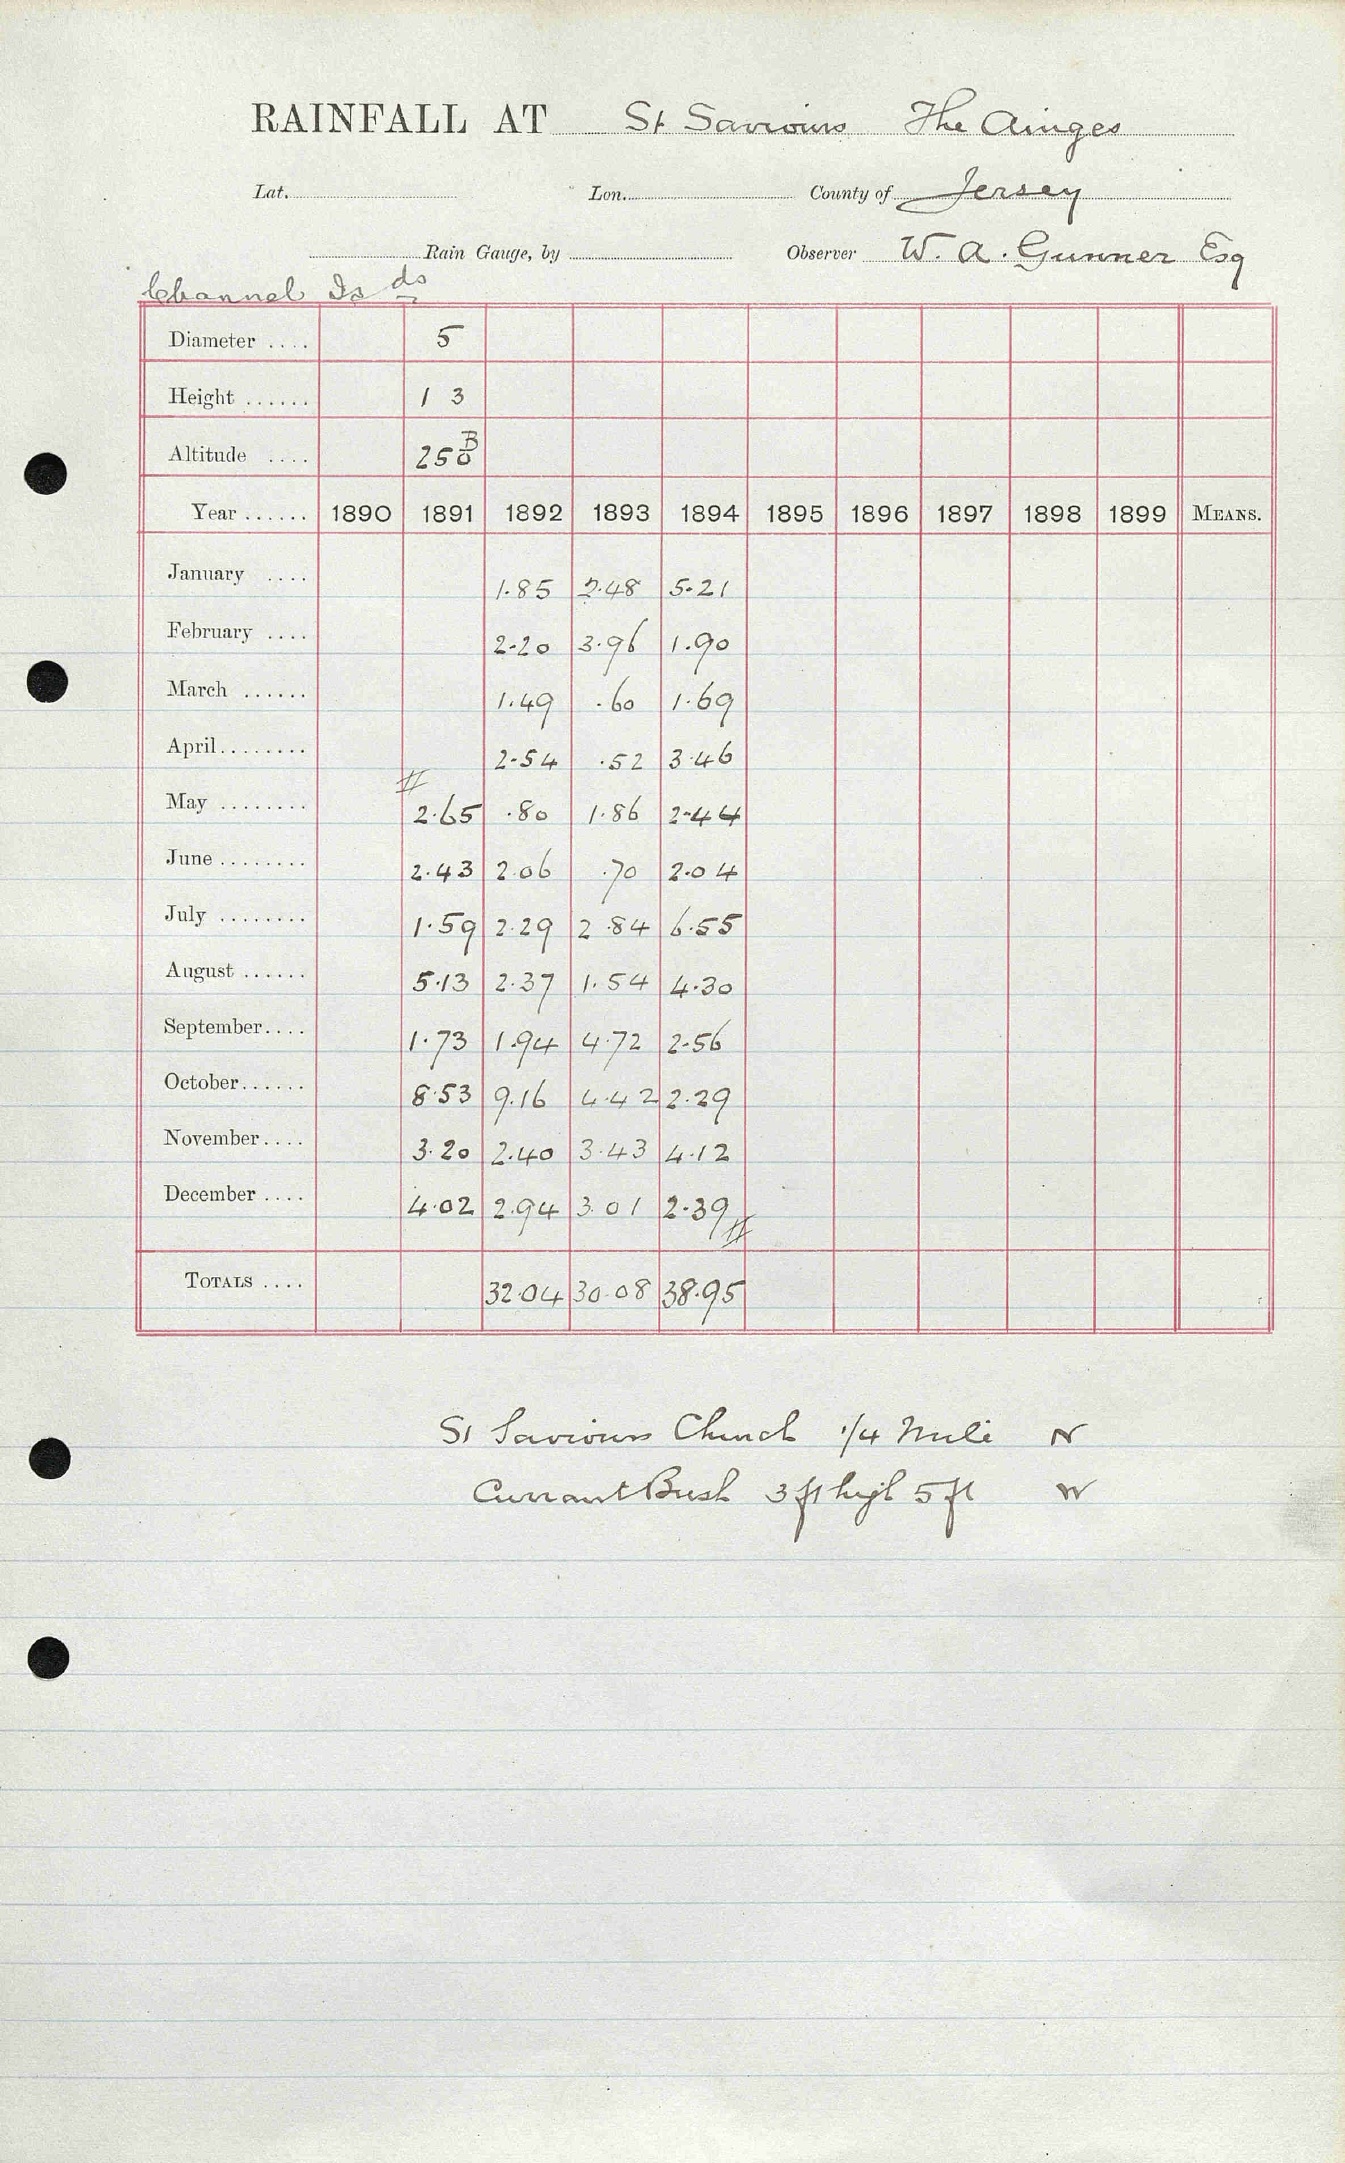 RAINFALL AT St Saviours The Ainges
Lat. Lon. County of Jersey
Rain Gauge, by Observer W. A. Gunner Esq
Channel Is ds
Diameter .... 5
Height ...... 1 3
Altitude .... 250 B
Year ...... 1890 1891 1892 1893 1894 1895 1896 1897 1898 1899 MEANS.
January .... 1.85 2.48 5.21
February .... 2.20 3.96 1.90
March ...... 1.49 .60 1.69
April........ 2.54 .52 3.46
May ........ 2.65 .80 1.86 2.44
June ........ 2.43 2.06 .70 2.04
July ........ 1.59 2.29 2.84 6.55
August ...... 5.13 2.37 1.54 4.30
September.... 1.73 1.94 4.72 2.56
October...... 8.53 9.16 4.42 2.29
November.... 3.20 2.40 3.43 4.12
December .... 4.02 2.94 3.01 2.39
TOTALS .... 32.04 30.08 38.95
St Saviours Church 1/4 Mile N
Currant Bush 3 ft high 5 ft W